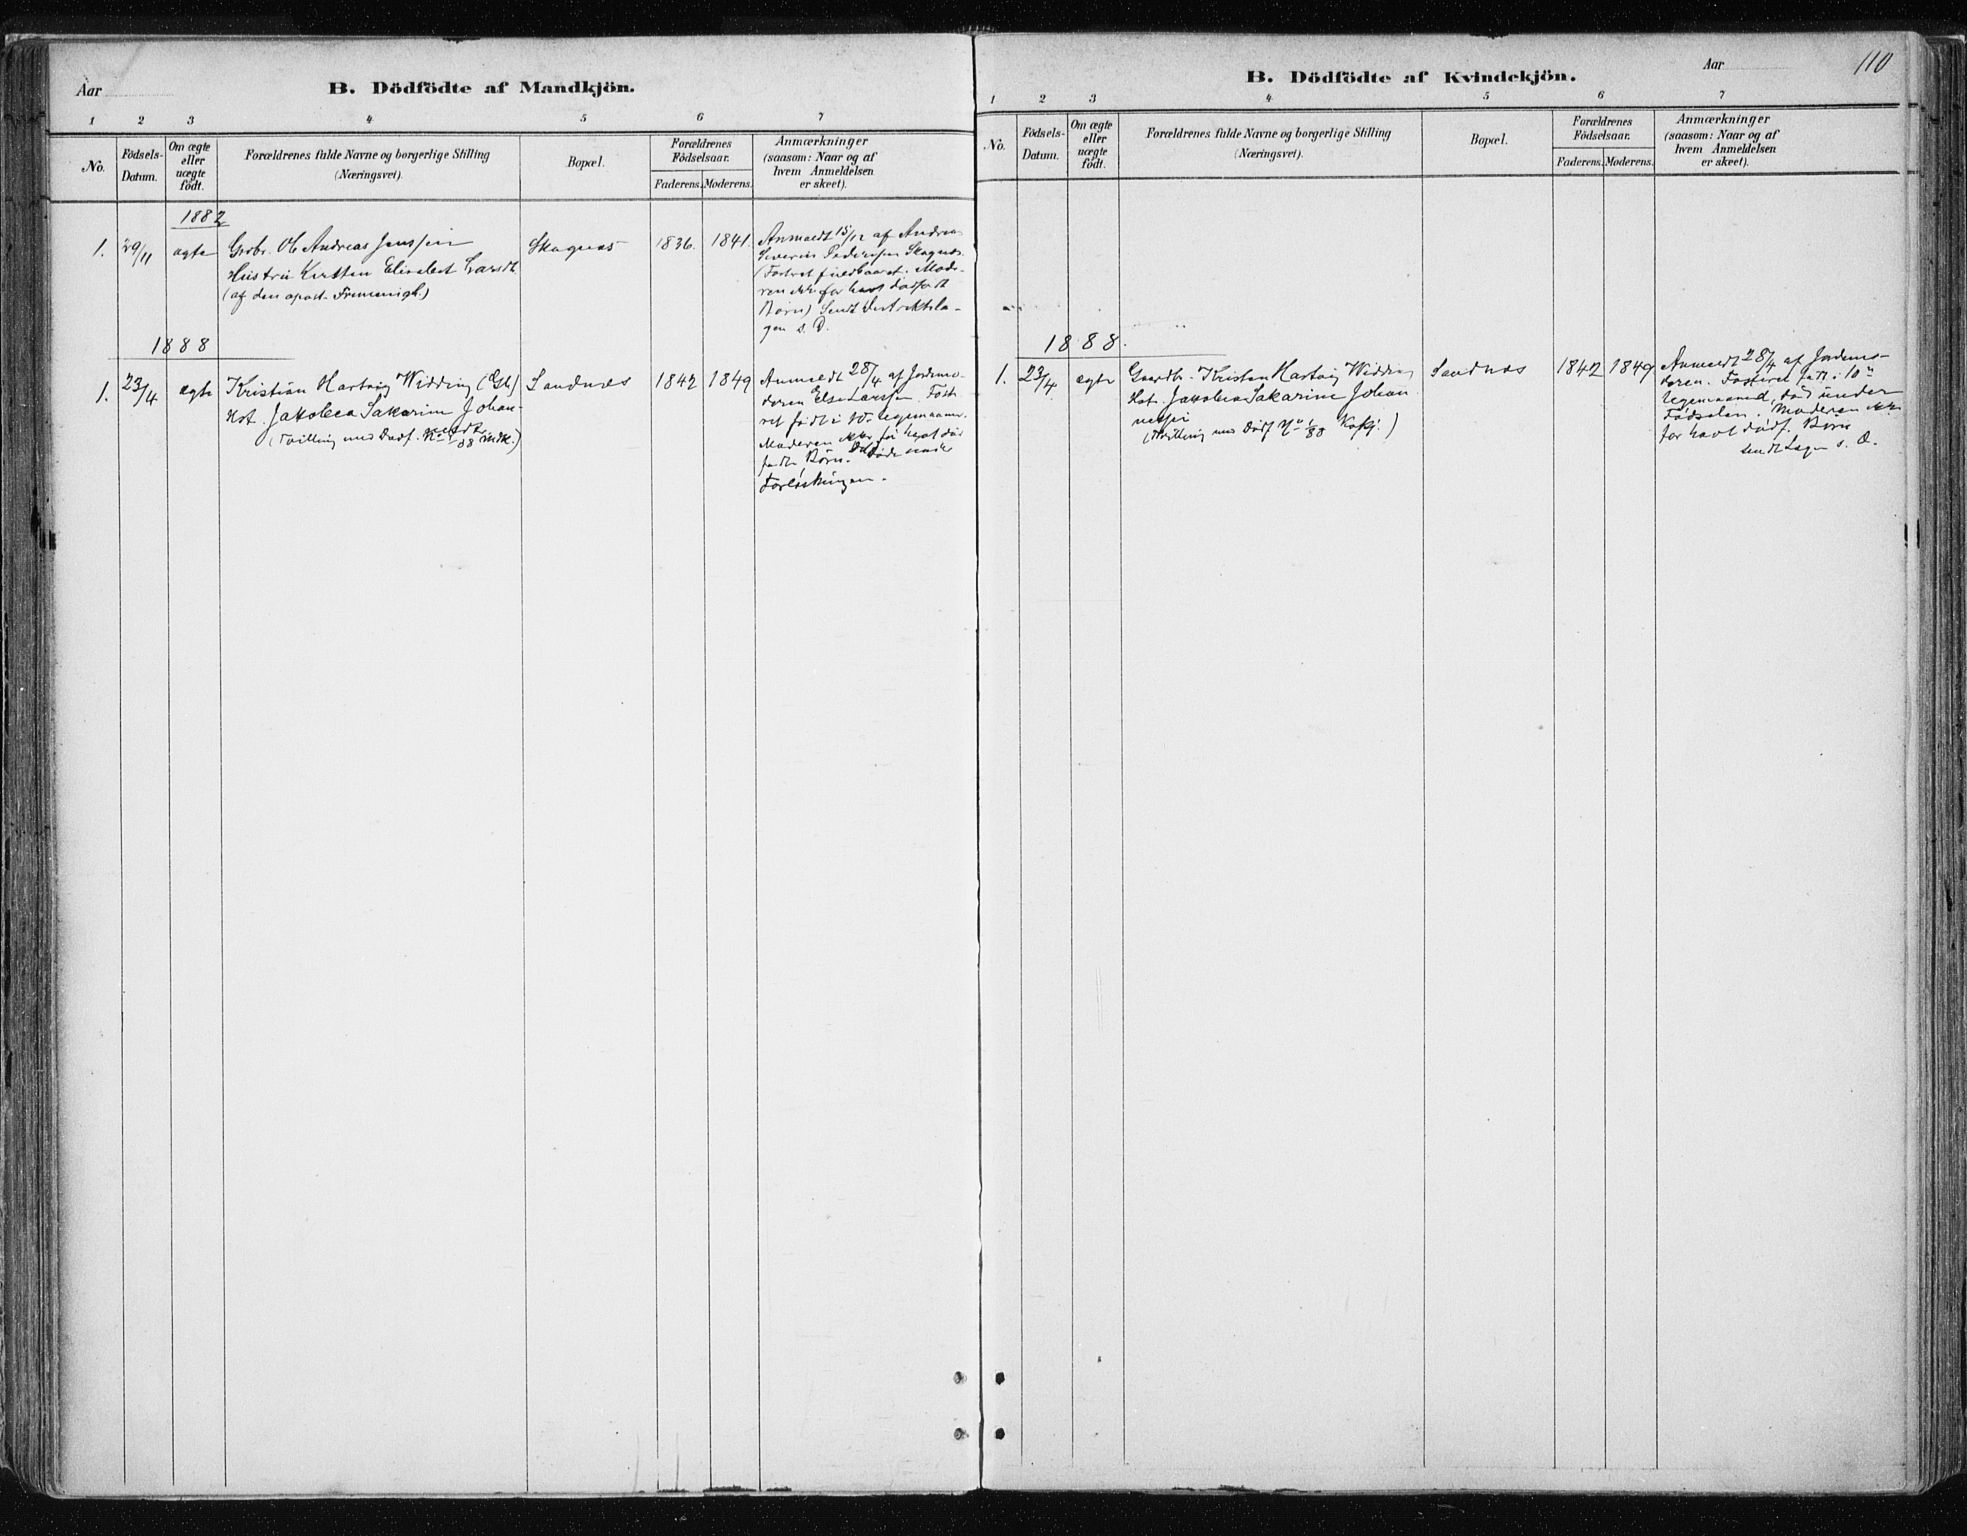 Aar
B. Dödfödte af Mandkjön.
1 2 3 4 5 6 7
No.
Födsels-
Datum.
Om ægte
eller
uægte
födt.
Forældrenes fulde Navne og borgerlige Stilling
(Næringsvei).
Bopæl.
Forældrenes
Födselsaar.
Faderens. Moderens.
Anmærkninger
(saasom: Naar og af
hvem Anmeldelsen
er skeet).
1882
1. 29/11 ægte
Grbr. Ole Andreas Jenssen
Hustru Kirsten Elisabet Larsdt.
(af den apost. Frimenigh.)
Skognæs
1836. 1841.
Anmeldt 15/12 af Andreas
Severin Pedersen Skognæs.
(Fostret fuldbaaret. Mode-
ren ikke før havt dødfødt
Børn) Sendt Distriktslæ-
gen s. D.
1888
1. 23/4 ægte
Kristian Hartvig Widding (Gb)
Hst. Jakobea Sakarine Johan-
(Tvilling med Dødf. Kvk.)
Sandnes
1842 1849
Anmeldt 28/4 af Jordemo-
deren Else Larssen. Fost-
ret født i 10. Legemaaned.
Moderen ikke før havt død-
fødte Børn. Døde under
Forløsningen.
110
Aar
B. Dödfödte af Kvindekjön.
1 2 3 4 5 6 7
No.
Födsels-
Datum.
Om ægte
eller
uægte
födt.
Forældrenes fulde Navne og borgerlige Stilling
(Næringsvei).
Bopæl.
Forældrenes
Födselsaar.
Faderens. Moderens.
Anmærkninger
(saasom: Naar og af
hvem Anmeldelsen
er skeet).
1888.
1. 23/4 ægte
Gaardbr. Kristian Hartvig Widding
Hst. Jakobea Sakarine Johan-
(Tvilling med Dødf. No 1/88)
Sandnæs
1842 1849
Anmeldt 28/4 af Jordemo-
deren. Fosteret født i 10de
Legemaaned, død under
Fødselen. Moderen ikke
før havt dødf. Børn
sendt Lægen s. D.